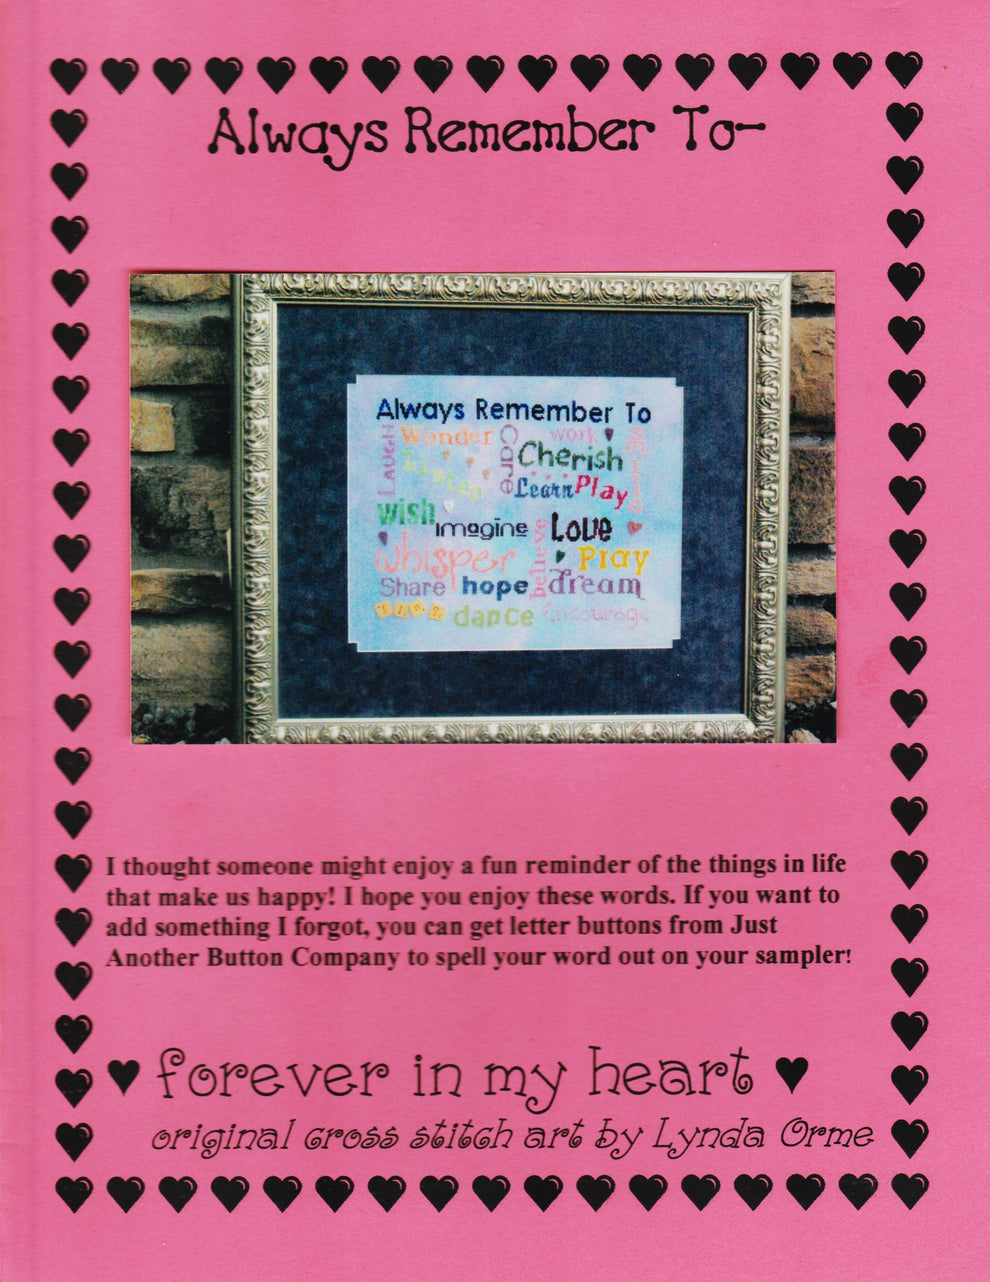 Always Remember To-
Always Remember To
Laugh
Wonder
Care
work
Cherish
Listen
Learn
Play
wish
imagine
Love
whisper
believe
Pray
Share
hope
dream
dance
Encourage
I thought someone might enjoy a fun reminder of the things in life
that make us happy! I hope you enjoy these words. If you want to
add something I forgot, you can get letter buttons from Just
Another Button Company to spell your word out on your sampler!
forever in my heart
original cross stitch art by Lynda Orme